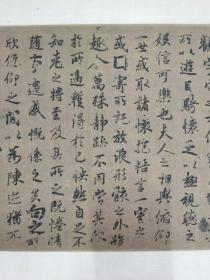 觀宇宙之大俯察品類之盛
所以遊目騁懷足以極視聽之
娛信可樂也夫人之相與俯仰
一世或取諸懷抱悟言一室之內
或因寄所託放浪形骸之外雖
趣舍萬殊靜躁不同當其欣
於所遇暫得於己快然自足不
知老之將至及其所之既惓情
隨事遷感慨係之矣向之所
欣俛仰之間以為陳迹猶不